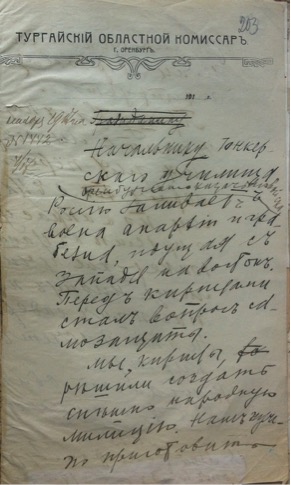 203
ТУРГАЙСКІЙ ОБЛАСТНОЙ КОМИССАРЪ.
Г. ОРЕНБУРГЪ.
191 г.
Начальнику юнкер-
скаго училища
Россію заливаетъ
волна анархіи и гра-
бежа, идущая съ
запада на востокъ.
Передъ киргизами
сталъ вопросъ са-
мозащиты.
Мы, киргизы,
рѣшили создать
спѣшно народную
милицію. Намъ нуж-
но приготовить